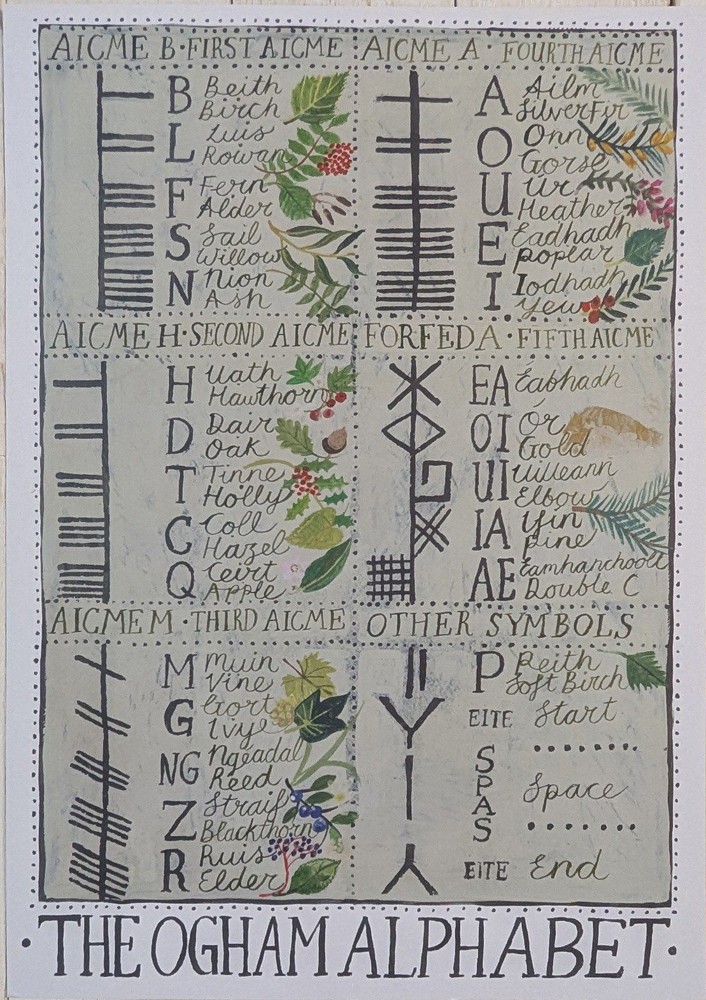 AICME B · FIRST AICME
B Beith
Birch
L Luis
Rowan
F Fern
Alder
S Sail
Willow
N Nion
Ash
AICME A · FOURTH AICME
A Ailm
Silver Fir
O Onn
Gorse
U Ur
Heather
E Eadhadh
poplar
I Iodhadh
Yew
AICME H · SECOND AICME
H Uath
Hawthorn
D Dair
Oak
T Tinne
Holly
C Coll
Hazel
Q Ceirt
Apple
FORFEDA · FIFTH AICME
EA Eabhadh
OI Ór
Gold
UI Uilleann
Elbow
IA Ifin
pine
AE Eamhancholl
Double C
AICME M · THIRD AICME
M Muin
Vine
G Gort
Ivye
NG Ngeadal
Reed
Z Straif
Blackthorn
R Ruis
Elder
OTHER SYMBOLS
P Peith
Soft Birch
EITE Start
SPAS Space
EITE End
· THE OGHAM ALPHABET ·